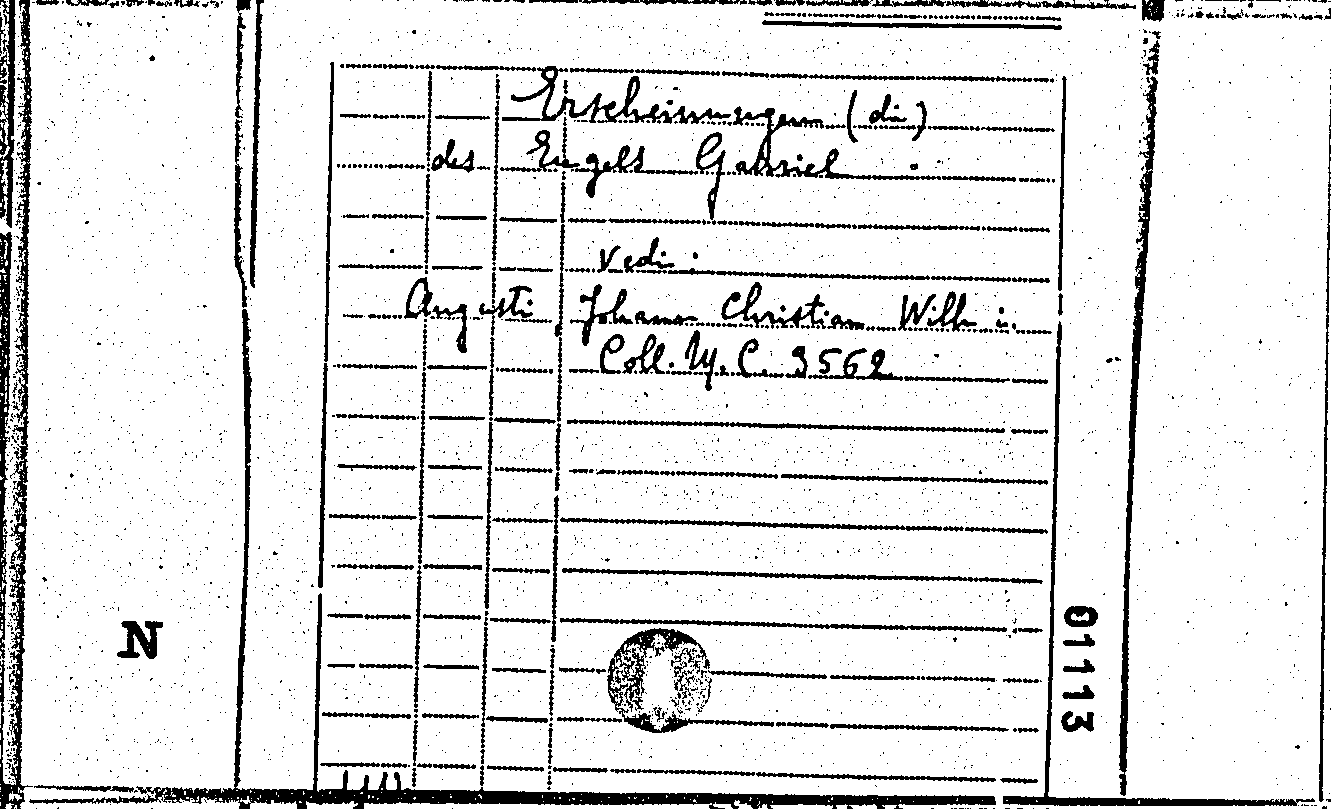 Erscheinungen (die)
des Engels Gabriel.
Vedi:
Augusti, Johann Christian Wilh. in.
Coll. M. C. 3562
N
01113